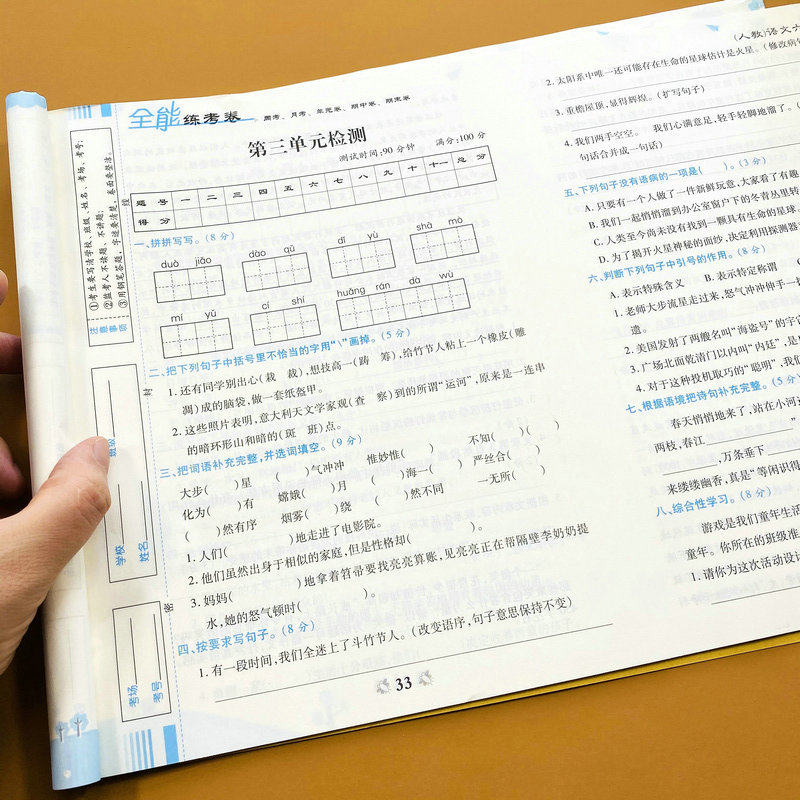 全能练考卷 周考、月考、单元卷、期中卷、期末卷
第三单元检测
测试时间:90分钟 满分:100分
题字 一 二 三 四 五 六 七 八 九 十 十一 总分
得分
一、拼拼写写。(8分)
duò jiāo dào qǔ dī yù shà mò
mí yǔ cí shí huāng rán dà wù
二、把下列句子中括号里不恰当的字用"\"画掉。(5分)
1.还有同学别出心(栽 裁),想技高一(踌 筹),给竹节人粘上一个橡皮(雕
凋)成的脑袋,做一套纸盔甲。
2.这些照片表明,意大利天文学家观(查 察)到的所谓"运河",原来是一连串
的暗环形山和暗的(斑 班)点。
三、把词语补充完整,并选词填空。(9分)
大步( )星 ( )气冲冲 惟妙惟( ) 不知( )( )
化为( )有 嫦娥( )月 ( )海一( ) 严丝合( )
( )然有序 烟雾( )绕 ( )然不同 一无所( )
1.人们( )地走进了电影院。
2.他们虽然出身于相似的家庭,但是性格却( )。
3.妈妈( )地拿着笤帚要找亮亮算账,见亮亮正在帮隔壁李奶奶提
水,她的怒气顿时( )。
四、按要求写句子。(8分)
1.有一段时间,我们全迷上了斗竹节人。(改变语序,句子意思保持不变)
33
①考生要写清学校、班级、姓名、考场、考号;
②监考人不读题、不讲题;
③用钢笔答题,字迹要清楚,卷面要整洁。
注意事项
班级
学校
姓名
考场
考号
封
密
(人教)语文六
2.太阳系中唯一还可能存在生命的星球估计是火星。(修改病句
3.重檐屋顶,显得辉煌。(扩写句子)
4.我们两手空空。 我们心满意足,轻手轻脚地溜了。(
句话合并成一句话)
五、下列句子没有语病的一项是( )。(3分)
A.只要有一个人做了一件新鲜玩意,大家看了有趣
B.我们一起悄悄溜到办公室窗户下的冬青丛里转
C.人类至今尚未没有找到一颗具有生命的星球。
D.为了揭开火星神秘的面纱,决定利用探测器
六、判断下列句子中引号的作用。(8分)
A.表示特殊含义 B.表示特定称谓
1.老师大步流星走过来,怒气冲冲伸手一
遗。
2.美国发射了两艘名叫"海盗号"的宇
3.广场北面乾清门以内叫"内廷",是
4.对于这种投机取巧的"聪明",我们
七、根据语境把诗句补充完整。(5分)
春天悄悄地来了,站在小河边
两枝,春江
,万条垂下
来缕缕幽香,真是"等闲识得
八、综合性学习。(8分)
游戏是我们童年生活
童年。你所在的班级准
1.请你为这次活动设计